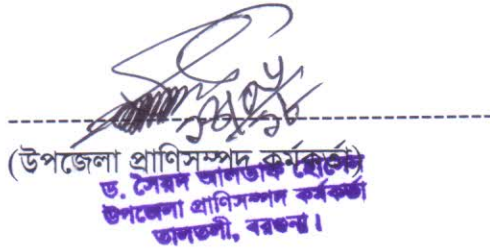 (উপজেলা প্রাণিসম্পদ কর্মকর্তা)
ড. সৈয়দ আলতাফ হোসেন
উপজেলা প্রাণিসম্পদ কর্মকর্তা
তালতলী, বরগুনা।